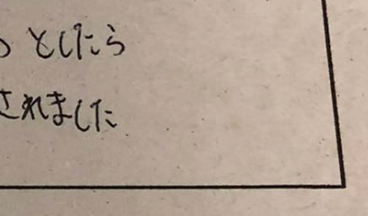 としたら
されました